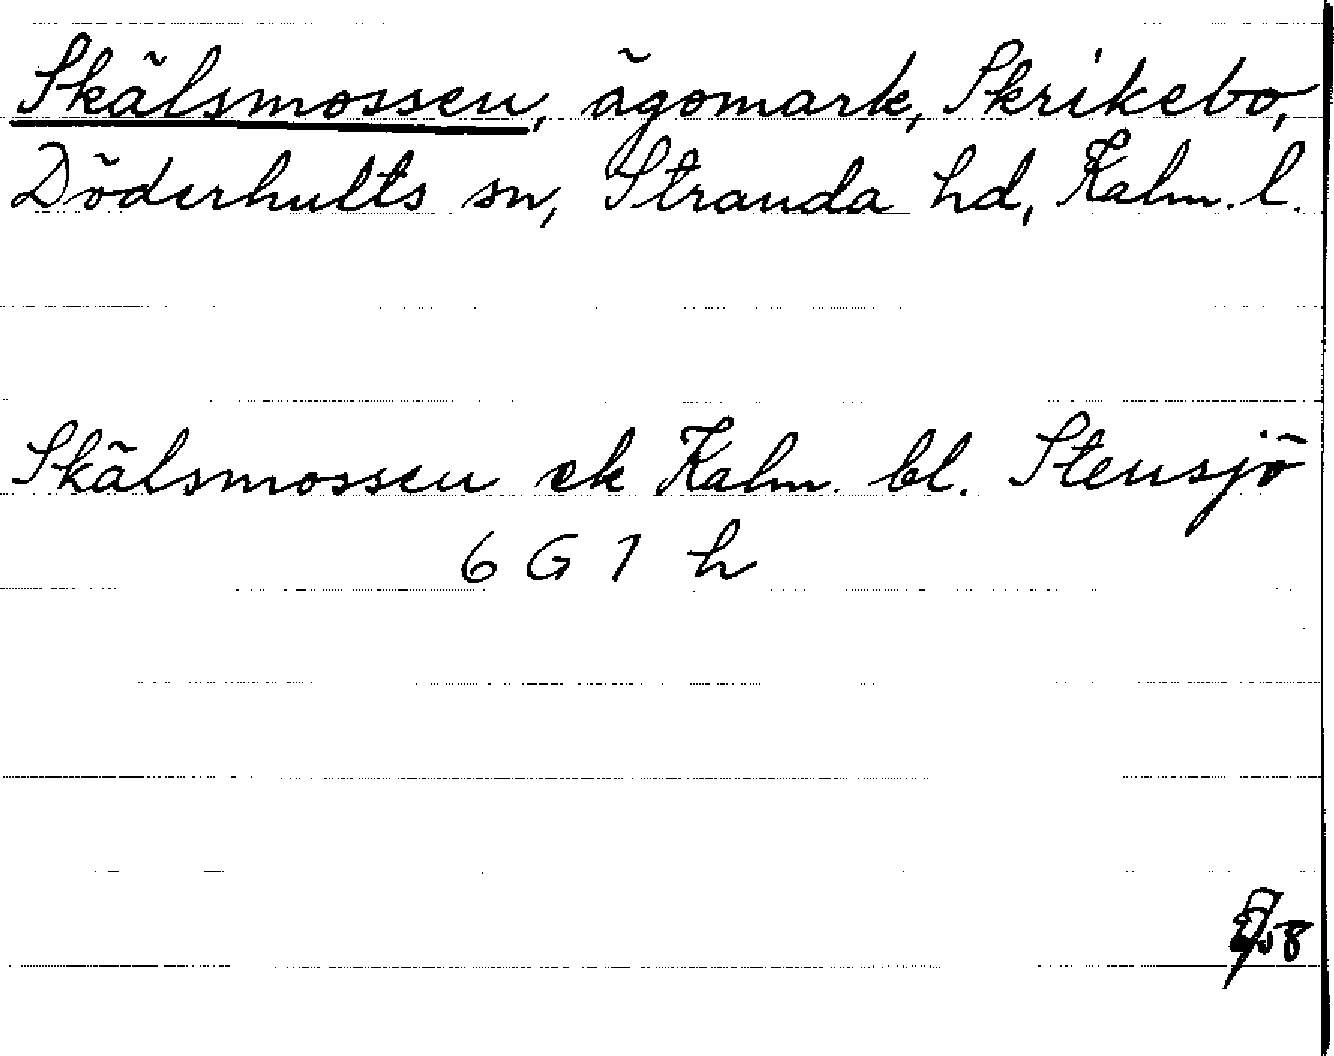 Skälsmossen, ägomark, Skrikebo,
Döderhults sn, Stranda hd, Kalm. l.
Skälsmossen ek Kalm. bl. Stensjö
6 G 1 h
58